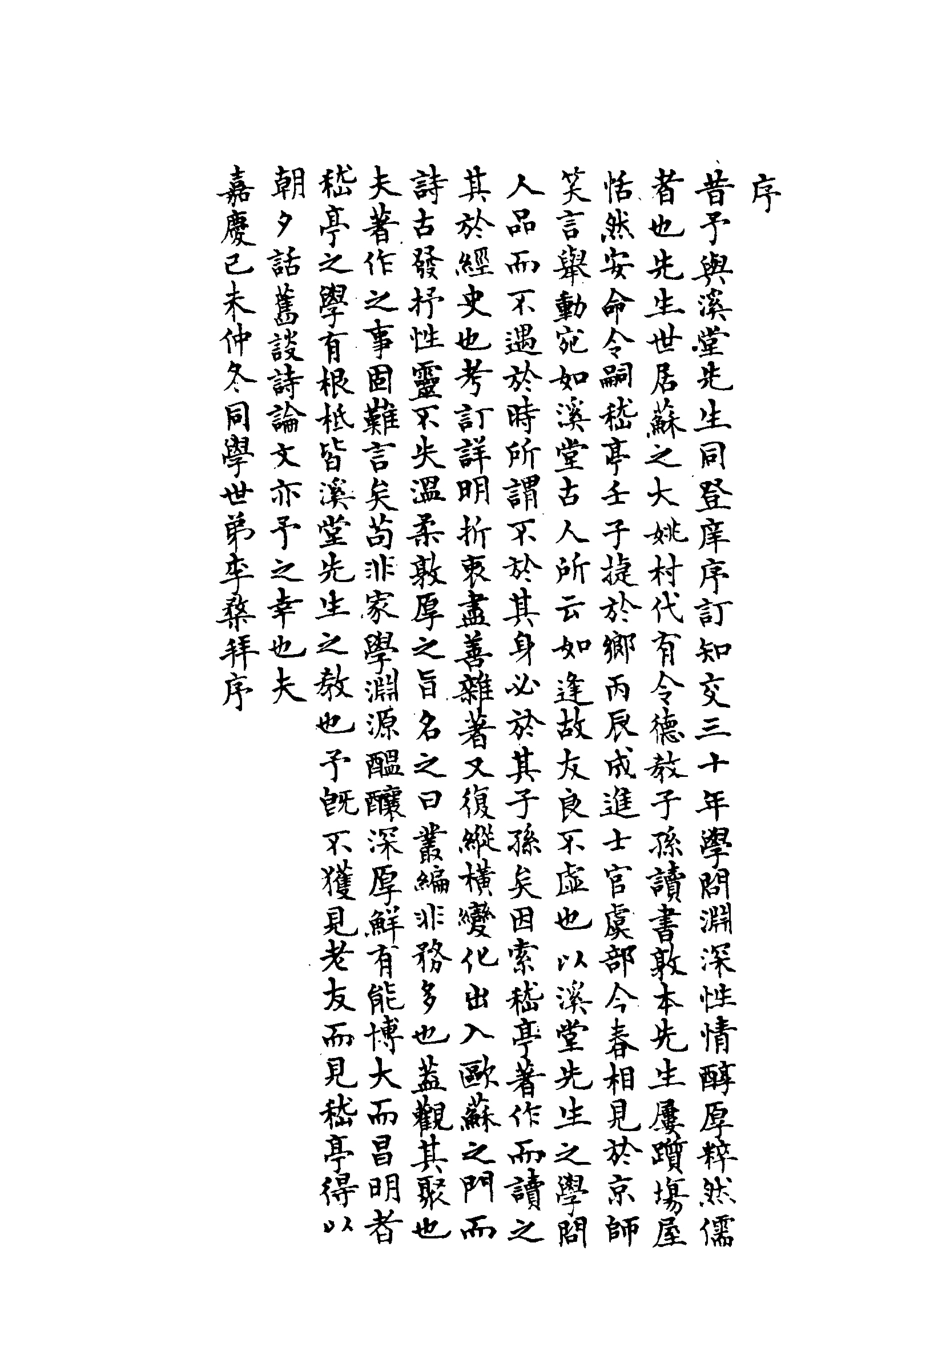 序
昔予與溪堂先生同登庠序訂知交三十年學問淵深性情醇厚粹然儒
者也先生世居蘇之大姚村代有令德教子孫讀書敦本先生屢躓塲屋
恬然安命令嗣嵇亭壬子捷於鄉丙辰成進士官虞部今春相見於京師
笑言舉動宛如溪堂古人所云如逢故友良不虛也以溪堂先生之學問
人品而不遇於時所謂不於其身必於其子孫矣因索嵇亭著作而讀之
其於經史也考訂詳明折衷盡善雜著又復縱橫變化出入歐蘇之門而
詩古發抒性靈不失溫柔敦厚之旨名之曰叢編非務多也葢觀其聚也
夫著作之事固難言矣苟非家學淵源醞釀深厚鮮有能博大而昌明者
嵇亭之學有根柢皆溪堂先生之教也予旣不獲見老友而見嵇亭得以
朝夕話舊談詩論文亦予之幸也夫
嘉慶己未仲冬同學世弟李棨拜序